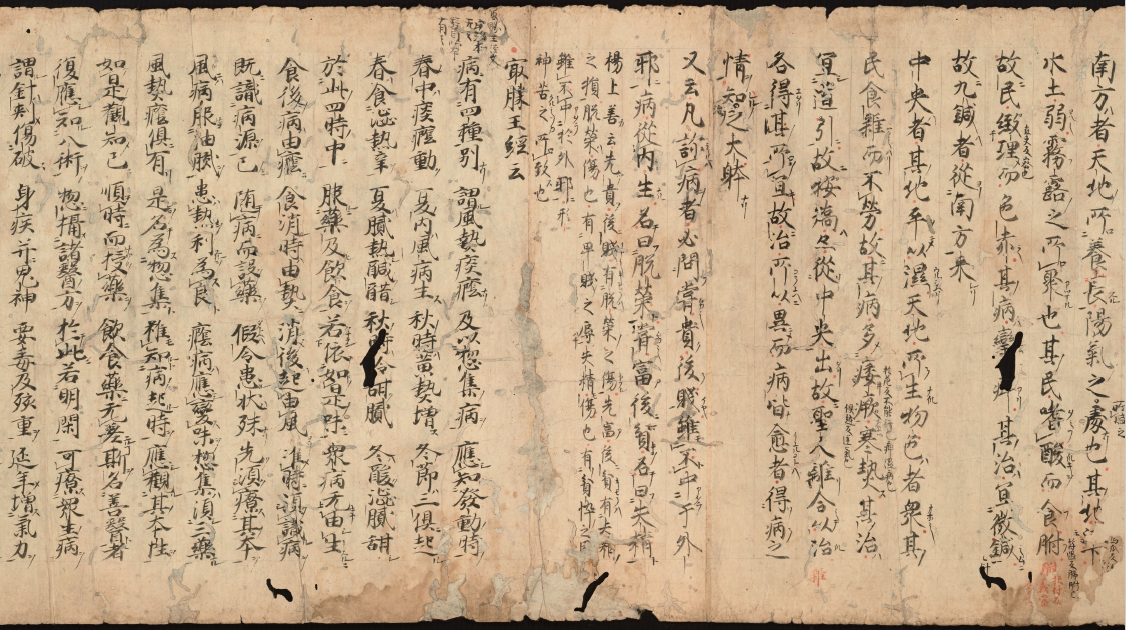 南方者天地所養長陽氣之處也其地下
水土弱霧露之所聚也其民嗜酸而食胕
故民緻理而色赤其病攣 其治宜微鍼
故九鍼者從南方來
中央者其地平以濕天地所生物色者衆其
民食雜而不勞故其病多痿厥寒熱其治
宜導引故按蹻亦從中央出故聖人雜合以治
各得其所宜故治所以異而病皆愈者得病之
情 知治之大躰
又云凡診病者必問嘗貴後賤雖不中于外
耶 病從内生名曰脱榮嘗富後貧名曰失精
楊上善云先貴後賤有脱榮之傷先富後貧有失精
之損脱榮傷也有卑賤之辱失精傷也有貧悴之
雖不中於外耶形
神苦之所致也
冣勝王經云
病有四種別 謂風熱痰癊 及以惣集病 應知發動時
春中痰癊動 夏内風病生 秋時黄熱增 冬節三俱起
春食澁熱辛 夏膩熱醎醋 秋時冷甜膩 冬酸澁膩甜
於此四時中 服藥及飲食 若依如是味 衆病无由生
食後病由癊 食消時由熱 消後起由風 准時須識病
既識病源已 隨病而設藥 假令患狀殊 先須療其本
風病服油膩 患熱利為良 癊病應變吐 惣集須三藥
風熱癊俱有 是名為惣集 雖知病起時 應觀其本性
如是觀知已 順時而授藥 飲食藥无差 斯名善醫者
復應知八術 惣攝諸醫方 於此若明閑 可療衆生病
謂針刺傷破 身疾并鬼神 惡毒及孩童 延年增氣力